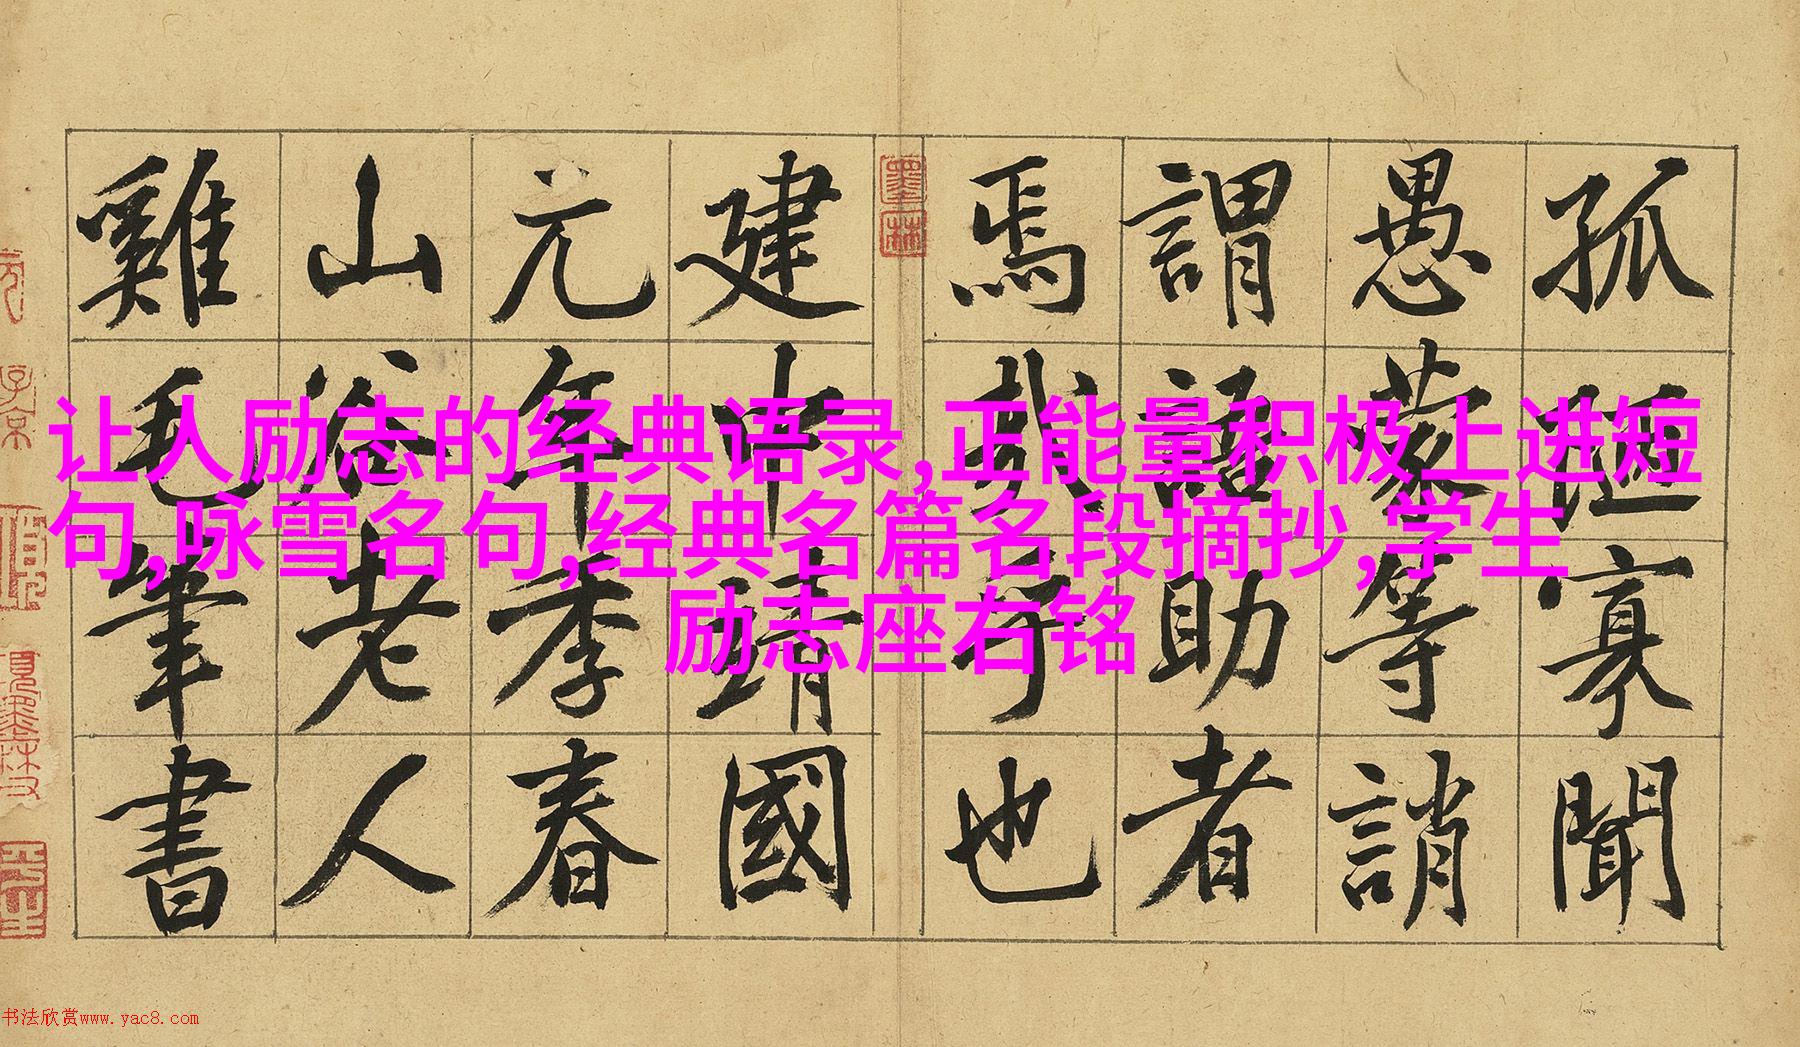 孤陋寡聞
愚蒙等誚
謂語助者
焉哉乎也
墨林
建中靖國
元年季春
山谷老人
雞毛筆書
让人励志的经典语录,正能量积极上进短
句,咏雪名句,经典名篇名段摘抄,学生
励志座右铭
书法欣赏www.yac8.com